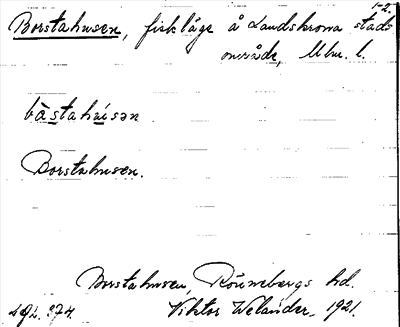 1-2.
Borstahusen, fiskläge å Landskrona stads
område, M
bàstahúsən
Borstahusen.
Borstahusen, Rönnebergs hd.
Viktor Welander. 1921.